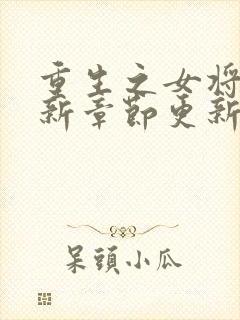 重生之女将
新章節更新
呆頭小瓜